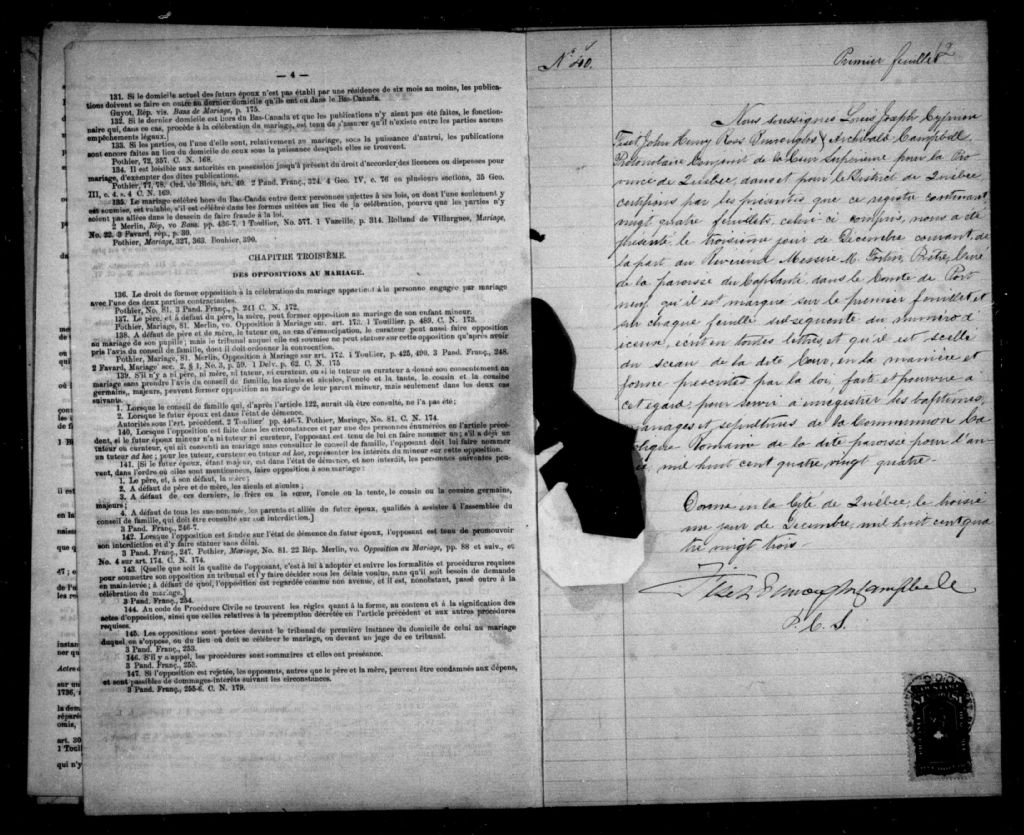 — 4 —
131. Si le domicile actuel des futurs époux n'est pas établi par une résidence de six mois au moins, les publica-
tions doivent se faire en outre au dernier domicile qu'ils ont eu dans le Bas-Canada.
Guyot, Rép. vis. Bans de Mariage, p. 175.
132. Si le dernier domicile est hors du Bas-Canada et que les publications n'y aient pas été faites, le fonction-
naire qui, dans ce cas, procède à la célébration du mariage, est tenu de s'assurer qu'il n'existe entre les parties aucuns
empêchements légaux.
133. Si les parties, ou l'une d'elles, sont, relativement au mariage, sous la puissance d'autrui, les publications
sont encore faites au lieu du domicile de ceux sous la puissance desquels elles se trouvent.
Pothier, 72, 357. C. N. 168.
134. Il est loisible aux autorités en possession jusqu'à présent du droit d'accorder des licences ou dispenses pour
mariage, d'exempter des dites publications.
Pothier, 77, 78. Ord. de Blois, art. 40. 2 Pand. Franç., 324. 4 Geo. IV, c. 76 en plusieurs sections, 35 Geo.
III, c. 4. s. 4 C. N. 169.
135. Le mariage célébré hors du Bas-Canada entre deux personnes sujettes à ses lois, ou dont l'une seulement y
est soumise, est valable, s'il est célébré dans les formes usitées au lieu de la célébration, pourvu que les parties n'y
soient pas allées dans le dessein de faire fraude à la loi.
2 Merlin, Rép, vo Bans. pp. 436-7. 1 Toullier, No. 577. 1 Vazeille, p. 314. Rolland de Villargues, Mariage,
No. 22. 3 Favard, rép., p. 30.
Pothier, Mariage, 327, 363. Bouhier, 390.
CHAPITRE TROISIÈME.
DES OPPOSITIONS AU MARIAGE.
136. Le droit de former opposition à la célébration du mariage appartient à la personne engagée par mariage
avec l'une des deux parties contractantes.
Pothier, No. 81. 3 Pand. Franç., p. 241 C. N. 172.
137. Le père, et à défaut du père, la mère, peut former opposition au mariage de son enfant mineur.
Pothier, Mariage, 81. Merlin, vo. Opposition à Mariage sur. art. 173. 1 Touillier. p. 489. C. N. 173.
138. A défaut de père et de mère, le tuteur ou, au cas d'émancipation, le curateur peut aussi faire opposition
au mariage de son pupille; mais le tribunal auquel elle est soumise ne peut statuer sur cette opposition qu'après avoir
pris l'avis du conseil de famille, dont il doit ordonner la convocation.
Pothier, Mariage, 81. Merlin, Opposition à Mariage sur art. 172. 1 Toulier, p. 425, 490. 3 Pand. Franç., 248.
2 Favard, Mariage sec. 2. § 1, No. 3, p. 59. 1 Delv. p. 62. C. N. 175
139. S'il n'y a ni père, ni mère, ni tuteur, ni curateur, ou si le tuteur ou curateur a donné son consentement au
mariage sans prendre l'avis du conseil de famille, les aïeuls et aïeules, l'oncle et la tante, le cousin et la cousine
germains, majeurs, peuvent former opposition au mariage de leur parent mineur, mais seulement dans les deux cas
suivants.
1. Lorsque le conseil de famille qui, d'après l'article 122, aurait dû être consulté, ne l'a pas été;
2. Lorsque le futur époux est dans l'état de démence.
Autorités sous l'art. précédent. 2 Toullier pp. 446-7. Pothier, Mariage, No. 81. C. N. 174.
140. Lorsque l'opposition est faite dans les circonstances et par une des personnes énumérées en l'article précé-
dent, si le futur époux mineur n'a ni tuteur ni curateur, l'opposant est tenu de lui en faire nommer un; s'il a déjà un
tuteur ou curateur, qui ait consenti au mariage sans consulter le conseil de famille, l'opposant doit lui faire nommer
un tuteur ad hoc; pour les tuteur, curateur ou tuteur ad hoc, représenter les intérêts du mineur sur cette opposition.
141. [Si le futur époux, étant majeur, est dans l'état de démence, et non interdit, les personnes suivantes peu-
vent, dans l'ordre où elles sont mentionnées, faire opposition à son mariage:
1. Le père, et, à son défaut, la mère;
2. A défaut de père et de mère, les aïeuls et aïeules;
3. A défaut de ces derniers, le frère ou la sœur, l'oncle ou la tante, le cousin ou la cousine germains,
majeurs;
4. A défaut de tous les sus-nommés, les parents et alliés du futur époux, qualifiés à assister à l'assemblée du
conseil de famille, qui doit être consulté sur son interdiction.]
3 Pand. Franç., 246-7.
142. Lorsque l'opposition est fondée sur l'état de démence du futur époux, l'opposant est tenu de promouvoir
son interdiction et d'y faire statuer sans délai.
3 Pand. Franç., 247. Pothier, Mariage, No. 81. 22 Rép. Merlin, vo. Opposition au Mariage, pp. 88 et suiv., et
No. 4 sur art. 174. C. N. 174.
143. [Quelle que soit la qualité de l'opposant, c'est à lui à adopter et suivre les formalités et procédures requises
pour soumettre son opposition au tribunal et l'y faire décider sous les délais voulus, sans qu'il soit besoin de demande
en main-levée; à défaut de quoi, l'opposition est regardée comme non avenue, et il est, nonobstant, passé outre à la
célébration du mariage.]
3 Pand. Franç., 254.
144. Au code de Procédure Civile se trouvent les règles quant à la forme, au contenu et à la signification des
actes d'opposition, ainsi que celles relatives à la péremption décrétée en l'article précédent et aux autres procédures
requises.
145. Les oppositions sont portées devant le tribunal de première instance du domicile de celui au mariage
duquel on s'oppose, ou du lieu où doit se célébrer le mariage, ou devant un juge de ce tribunal.
3 Pand. Franç., 253.
146. S'il y a appel, les procédures sont sommaires et elles ont préséance.
3 Pand. Franç., 253.
147. Si l'opposition est rejetée, les opposants, autres que le père et la mère, peuvent être condamnés aux dépens,
et sont passibles de dommages-intérêts suivant les circonstances.
3 Pand. Franç., 255-6. C. N. 179.
No 40.
Premier feuillet
Nous soussignés Louis Joseph Cyprien
Fiset John Henry Ross Burroughs & Archibald Campbell
Protonotaire Conjoint de la Cour Supérieure pour la Pro
vince de Québec, dans et pour le District de Québec
certifions par les présentes que ce registre contenant
vingt quatre feuillets, celui ci compris, nous a été
présenté le troisième jour de Décembre courant, de
la part du Révérend Messire M. Fortin, Prêtre, Curé
de la paroisse du Cap Santé dans le Comté de Port
neuf, qu'il est marqué sur le premier feuillet et
sur chaque feuille subséquente du numéro d
icelui, écrit en toutes lettres, et qu'il est scellé
du sceau de la dite Cour, en la manière et
forme prescrites par la loi, faite et pourvue à
cet égard, pour servir à enregistrer les baptêmes,
mariages et sépultures de la Communion Ca
tholique Romaine de la dite paroisse pour l'an
née, mil huit cent quatre vingt quatre.
Donné en la Cité de Québec, le troisiè
me jour de Décembre, mil huit cent qua
tre vingt trois.
Fiset Burroughs Campbell
P. C. S.